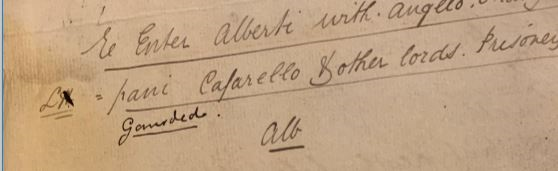 Re Enter Alberti with. Angelo.
= pani Cafarello & other lords. Prisoners
Gaurded.
Alb